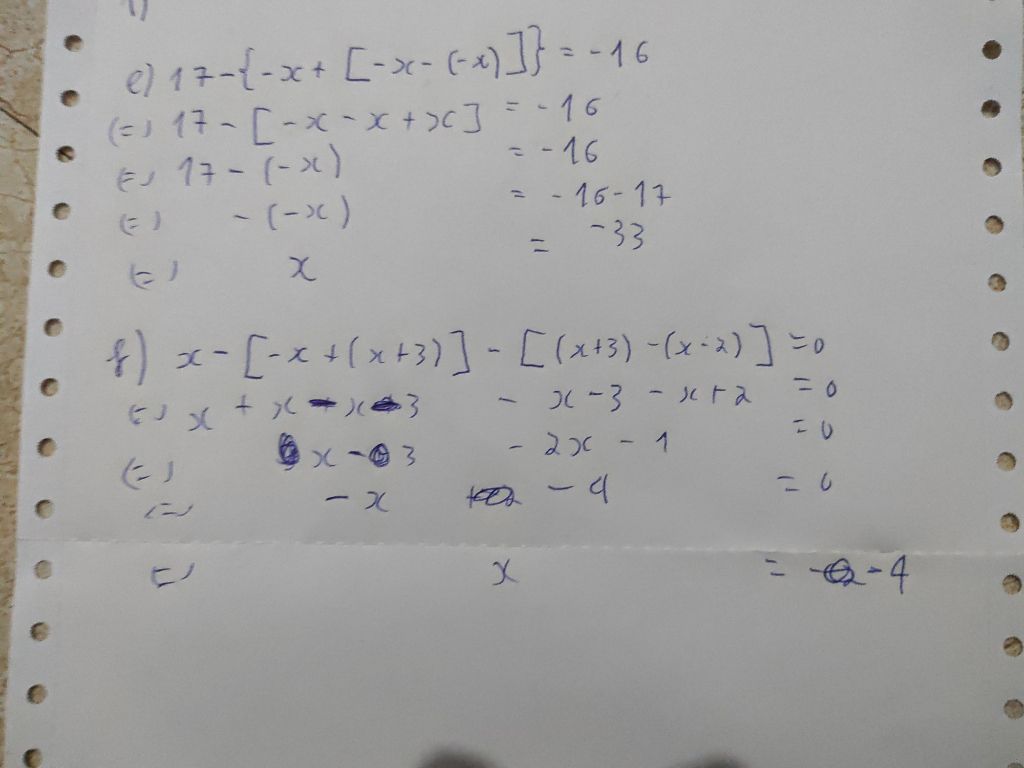 e) 17-{-x+[-x-(-x)]} = -16
(=) 17 - [-x - x + x] = -16
(=) 17 - (-x) = -16
(=) - (-x) = -16-17
(=) x = -33
f) x - [-x + (x+3)] - [(x+3) - (x-2)] = 0
(=) x + x - x - 3 - x - 3 - x + 2 = 0
(=) x - 3 - 2x - 1 = 0
(=) - x - 4 = 0
(=) x = -4